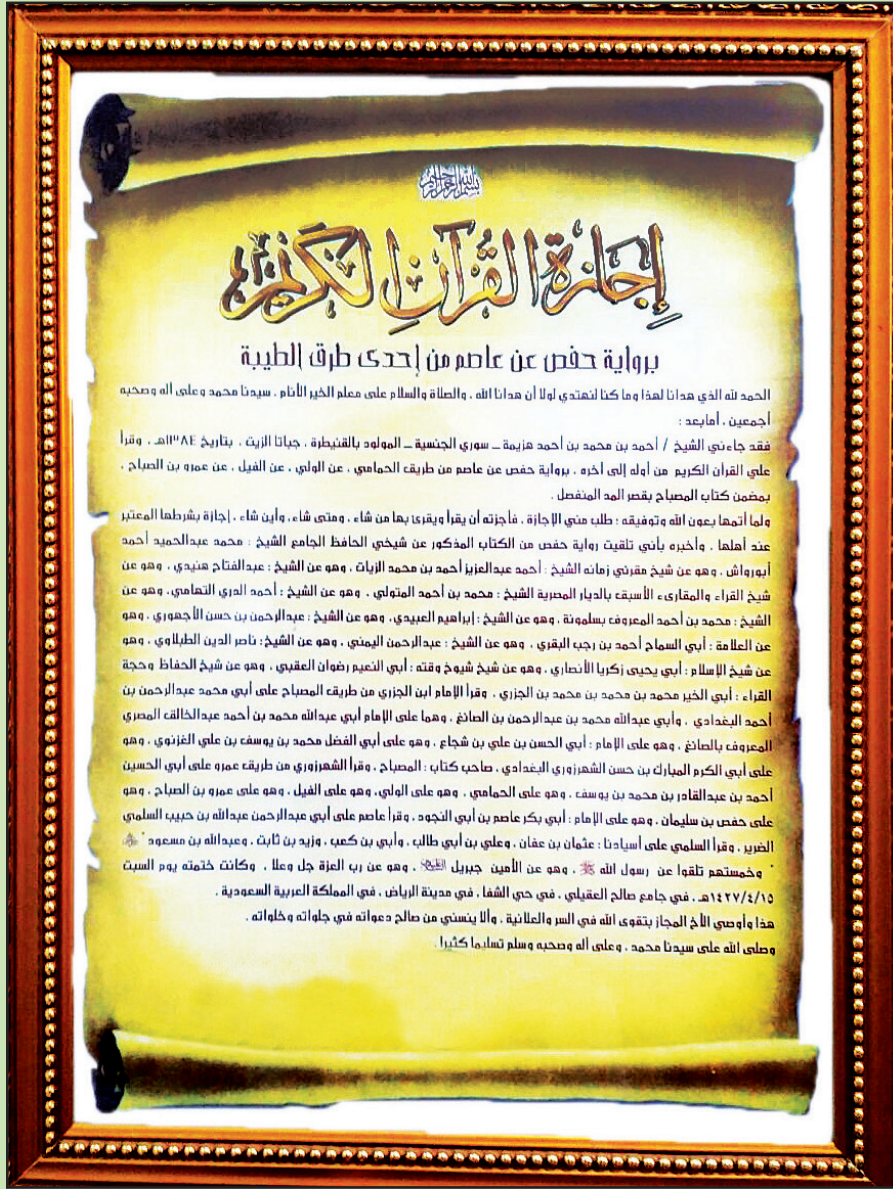 بسم الله الرحمن الرحيم
إجازة القرآن الكريم
برواية حفص عن عاصم من إحدى طرق الطيبة
الحمد لله الذي هدانا لهذا وما كنا لنهتدي لولا أن هدانا الله ، والصلاة والسلام على معلم الخير الأنام ، سيدنا محمد وعلى آله وصحبه
أجمعين ، أما بعد :
فقد جاءني الشيخ / أحمد بن محمد بن أحمد هزيمة – سوري الجنسية – المولود بالقنيطرة ، جباتا الزيت ، بتاريخ ١٣٨٤هـ ، وقرأ
علي القرآن الكريم من أوله إلى آخره ، برواية حفص عن عاصم من طريق الحمامي ، عن الولي ، عن الفيل ، عن عمرو بن الصباح ،
بمضمن كتاب المصباح بقصر المد المنفصل .
ولما أتمها بعون الله وتوفيقه : طلب مني الإجازة ، فأجزته أن يقرأ ويقرئ بها من شاء ، ومتى شاء ، وأين شاء ، إجازة بشرطها المعتبر
عند أهلها ، وأخبره بأني تلقيت رواية حفص من الكتاب المذكور عن شيخي الحافظ الجامع الشيخ : محمد عبدالحميد أحمد
أبورواش ، وهو عن شيخ مقرئي زمانه الشيخ : أحمد عبدالعزيز أحمد بن محمد الزيات ، وهو عن الشيخ : عبدالفتاح هنيدي ، وهو عن
شيخ القراء والمقارىء الأسبق بالديار المصرية الشيخ : محمد بن أحمد المتولي ، وهو عن الشيخ : أحمد الدري التهامي، وهو عن
الشيخ : محمد بن أحمد المعروف بسلمونة ، وهو عن الشيخ : إبراهيم العبيدي، وهو عن الشيخ : عبدالرحمن بن حسن الأجهوري ، وهو
عن العلامة : أبي السماح أحمد بن رجب البقري ، وهو عن الشيخ : عبدالرحمن اليمني ، وهو عن الشيخ: ناصر الدين الطبلاوي ، وهو
عن شيخ الإسلام : أبي يحيى زكريا الأنصاري ، وهو عن شيخ شيوخ وقته : أبي النعيم رضوان العقبي ، وهو عن شيخ الحفاظ وحجة
القراء : أبي الخير محمد بن محمد بن محمد بن الجزري ، وقرأ الإمام ابن الجزري من طريق المصباح على أبي محمد عبدالرحمن بن
أحمد البغدادي ، وأبي عبدالله محمد بن عبدالرحمن بن الصائغ ، وهما على الإمام أبي عبدالله محمد بن أحمد عبدالخالق المصري
المعروف بالصائغ ، وهو على الإمام : أبي الحسن بن علي بن شجاع ، وهو على أبي الفضل محمد بن يوسف بن علي الغزنوي ، وهو
على أبي الكرم المبارك بن حسن الشهرزوري البغدادي ، صاحب كتاب : المصباح ، وقرأ الشهرزوري من طريق عمرو على أبي الحسين
أحمد بن عبدالقادر بن محمد بن يوسف ، وهو على الحمامي ، وهو على الولي، وهو على الفيل ، وهو على عمرو بن الصباح ، وهو
على حفص بن سليمان ، وهو على الإمام : أبي بكر عاصم بن أبي النجود ، وقرأ عاصم على أبي عبدالرحمن عبدالله بن حبيب السلمي
الضرير ، وقرأ السلمي على أسيادنا : عثمان بن عفان ، وعلي بن أبي طالب ، وأبي بن كعب ، وزيد بن ثابت ، وعبدالله بن مسعود
وخمستهم تلقوا عن رسول الله ﷺ ، وهو عن الأمين جبريل ، وهو عن رب العزة جل وعلا ، وكانت ختمته يوم السبت
١٤٢٧/٤/١٥هـ ، في جامع صالح العقيلي ، في حي الشفا ، في مدينة الرياض ، في المملكة العربية السعودية .
هذا وأوصي الأخ المجاز بتقوى الله في السر والعلانية ، وألا ينسني من صالح دعواته في جلواته وخلواته .
وصلى الله على سيدنا محمد ، وعلى آله وصحبه وسلم تسليما كثيرا .